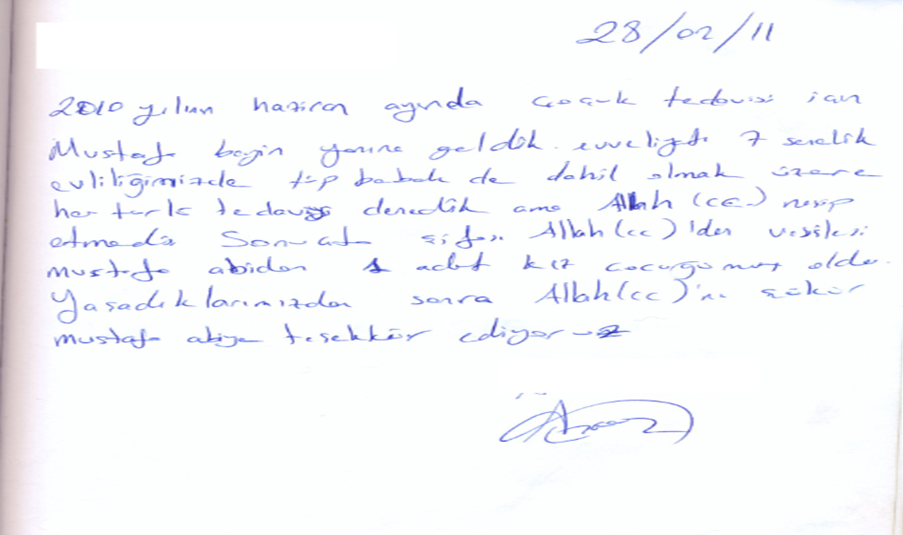 28/02/11
2010 yılın haziran ayında çocuk tedavisi için
Mustafa beyin yanına geldik. evveliyatı 7 senelik
evliliğimizde tüp bebek de dahil olmak üzere
her türlü tedaviyi denedik ama Allah (cc) nasip
etmedi Sonuçta şifası Allah (cc)'den vesilesi
mustafa abiden 1 adet kız çocuğumuz oldu.
Yaşadıklarımızdan sonra Allah(cc)'a şükür
mustafa abiye teşekkür ediyoruz